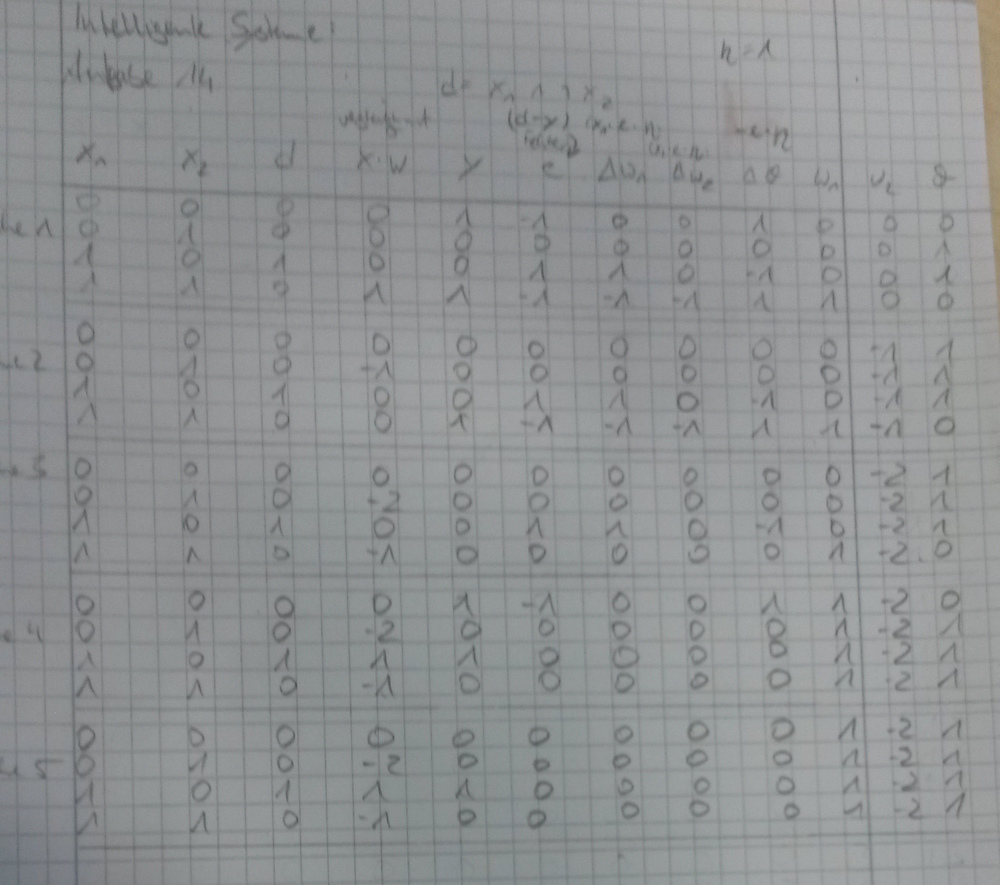 Intelligente Systeme:
n = 1
14
d = x₁ ∧ ¬ x₂
(d-y) x₁·e·n -e·n
x₁ x₂ d x·w y e Δw₁ Δw₂ Δθ w₁ w₂ θ
0 0 0 0 1 -1 0 0 1 0 0 0
1 0 1 0 0 0 0 0 0 0 0 0 1
1 0 1 0 0 1 1 0 -1 0 0 1
1 1 0 1 1 -1 -1 -1 1 1 0 0
0 0 0 0 0 0 0 0 0 0 -1 1
2 0 1 0 -1 0 0 0 0 0 0 -1 1
1 0 1 0 0 1 1 0 -1 0 -1 1
1 1 0 0 1 -1 -1 -1 1 1 -1 0
3 0 0 0 0 0 0 0 0 0 0 -2 1
0 1 0 -2 0 0 0 0 0 0 -2 1
1 0 1 0 0 1 1 0 -1 0 -2 1
1 1 0 -1 0 0 0 0 0 1 -2 0
0 0 0 0 1 -1 0 0 1 1 -2 0
4 0 1 0 -2 0 0 0 0 0 1 -2 1
1 0 1 1 1 0 0 0 0 1 -2 1
1 1 0 -1 0 0 0 0 0 1 -2 1
0 0 0 0 0 0 0 0 0 1 -2 1
5 0 1 0 -2 0 0 0 0 0 1 -2 1
1 0 1 1 1 0 0 0 0 1 -2 1
1 1 0 -1 0 0 0 0 0 1 -2 1